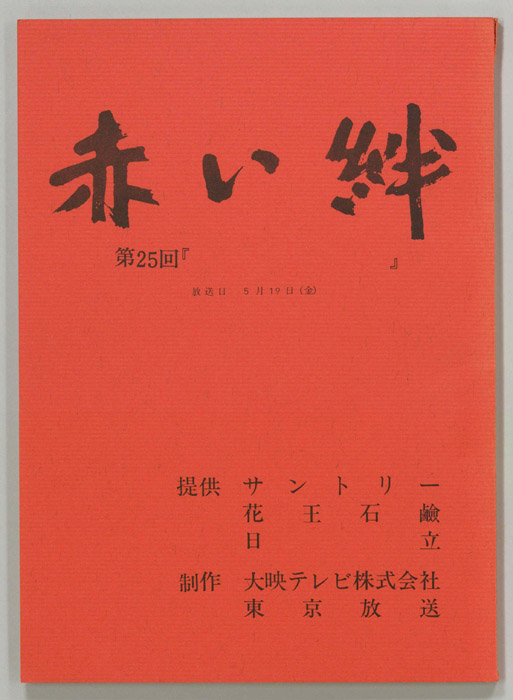 赤い絆
第25回『　　　』
放送日　5月19日（金）
提供　サントリー
花王石鹸
日立
制作　大映テレビ株式会社
東京放送